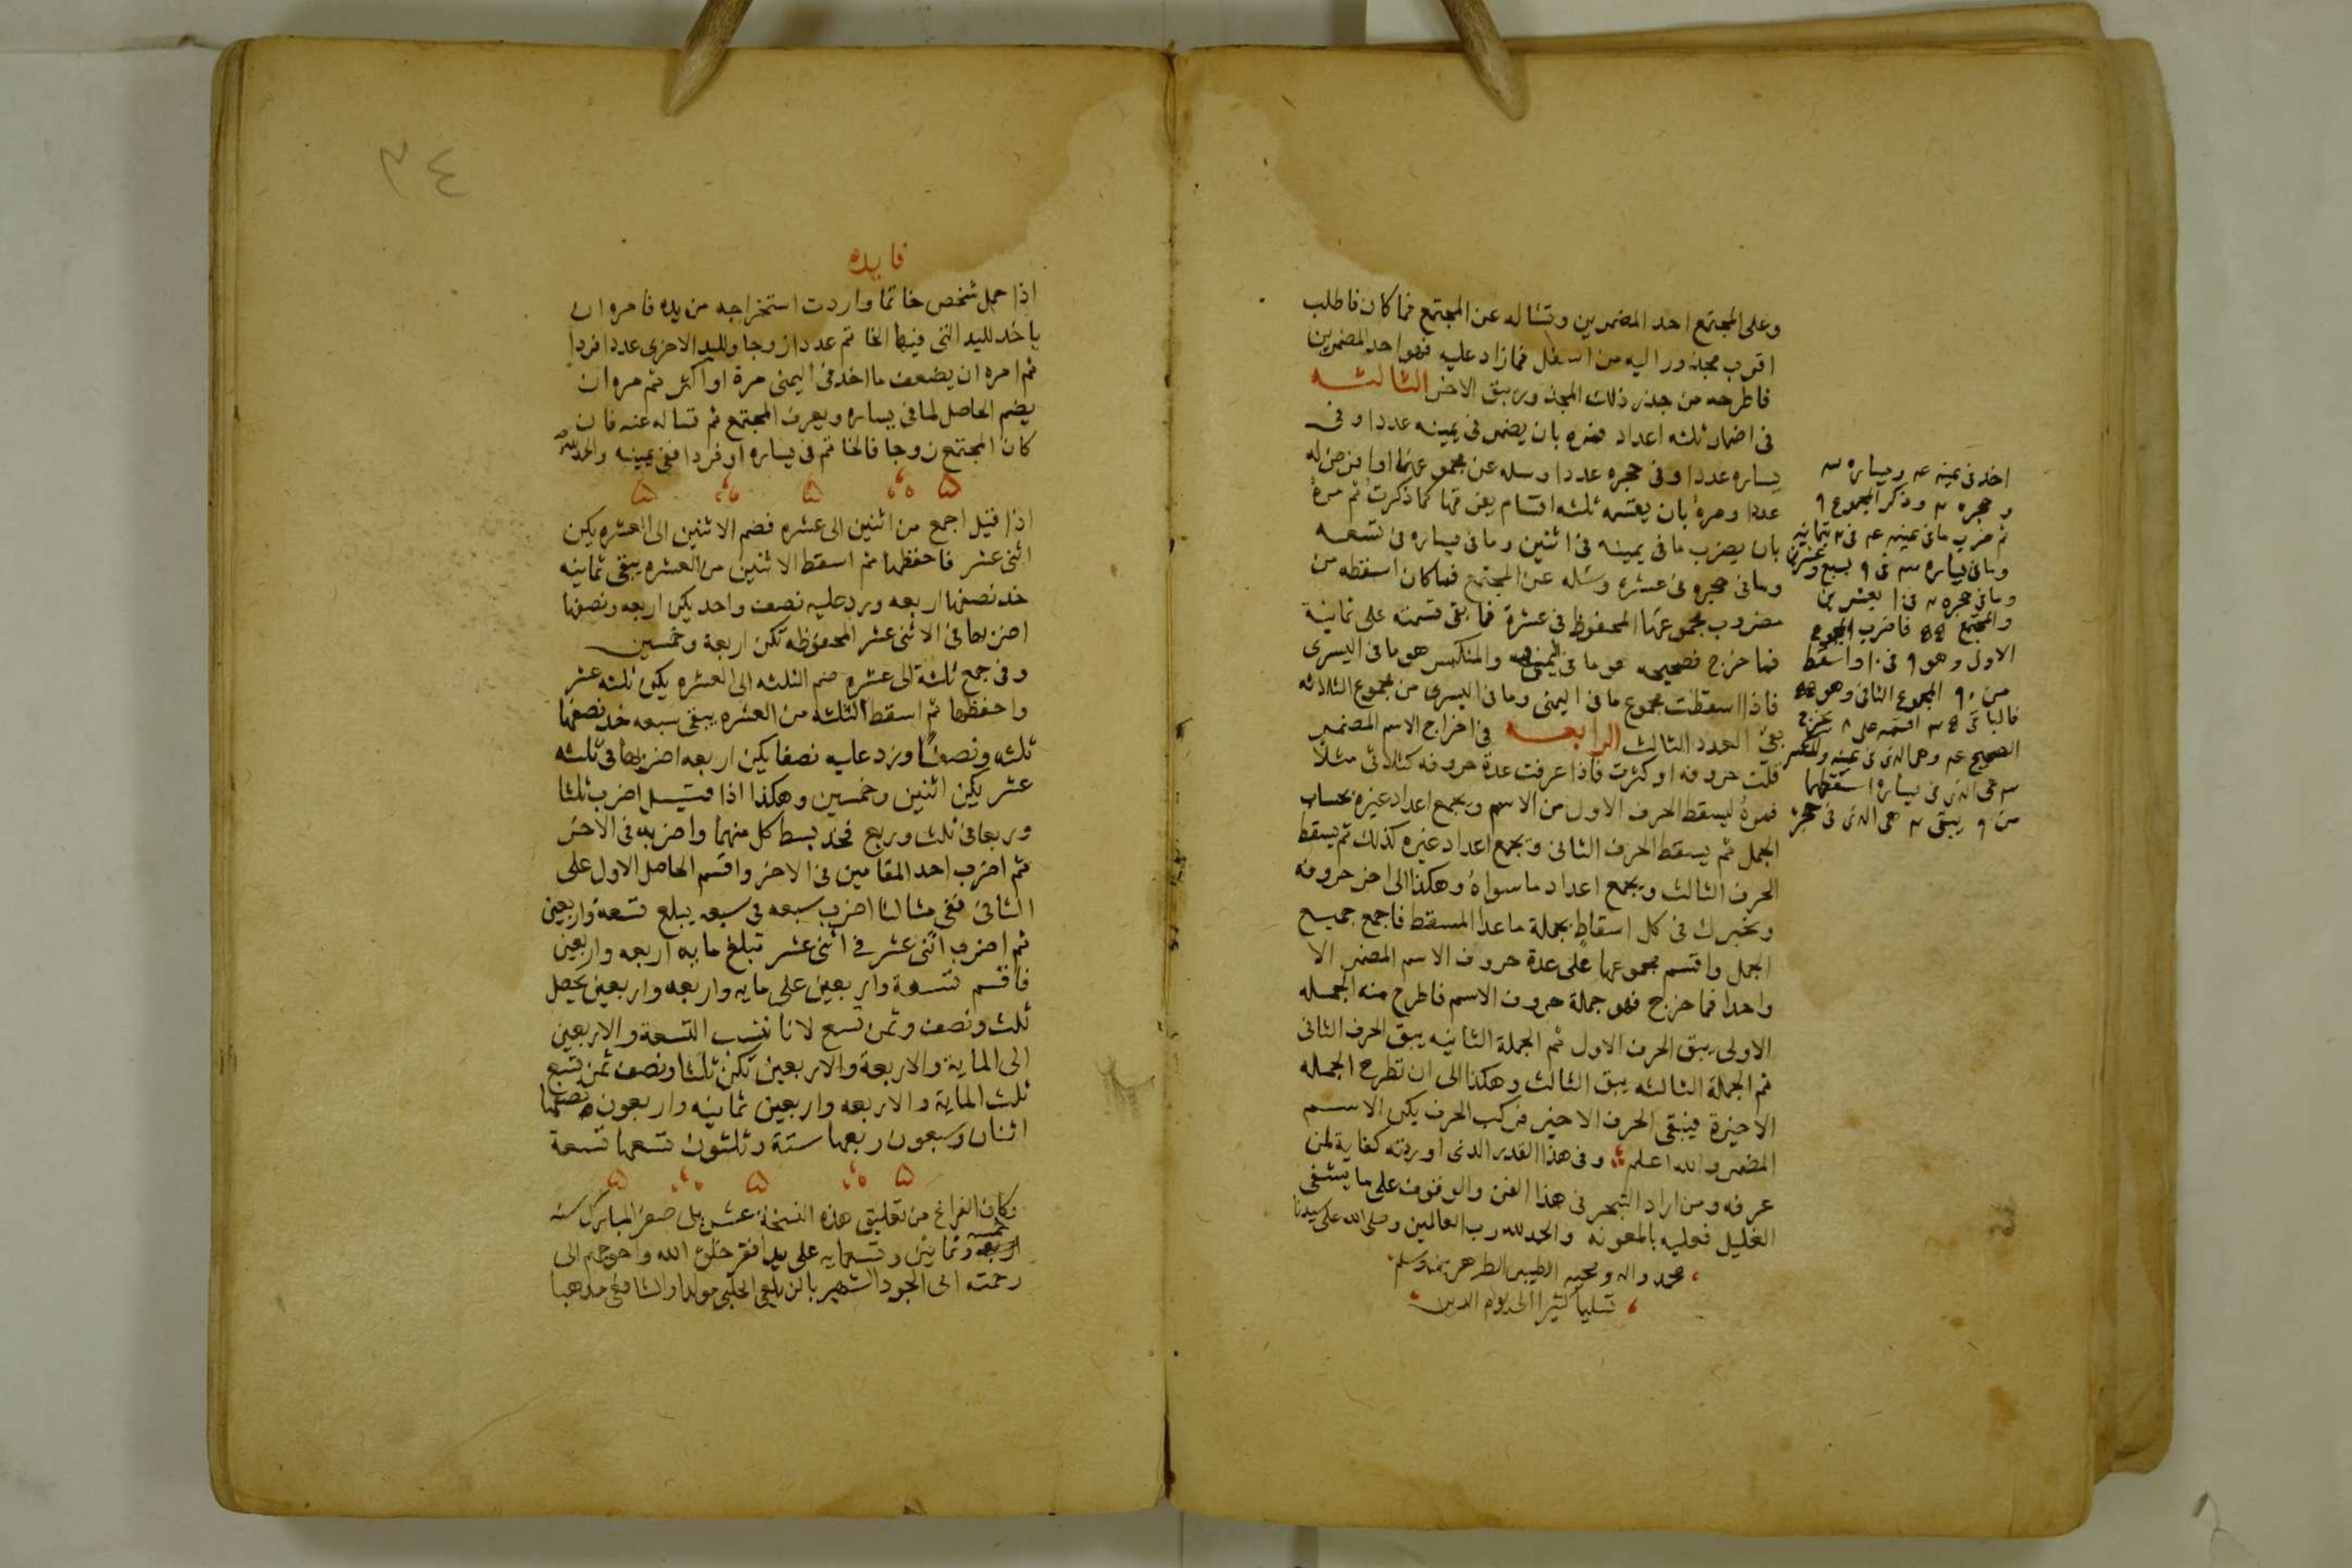 وعلى المجتمع احد المضمرين وتساله عن المجتمع فما كان فاطلب
اقرب مجذور اليه من اسفل فمازاد عليه فهو احد المضمرين
فاطرحه من جذر ذلك المجذور يبق الاخر الثالثه
فى اضمار ثلثه اعداد فمره بان يضمر فى يمينه عددا وفى
يساره عددا وفى حجره عددا وسله عن مجموعها او افرض له
عددا ومره بان يقسمه ثلثه اقسام يفرقها كما ذكرت ثم مره
بان يضرب ما فى يمينه فى اثنين وما فى يساره فى تسعه
وما فى حجره فى عشره وسله عن المجتمع فما كان اسقطه من
مضروب مجموعها المحفوظ فى عشرة فما بقى قسمته على ثمانية
فما خرج فصحيحه هو ما فى اليمنى والمنكسر هو ما فى اليسرى
فاذا اسقطت مجموع ما فى اليمنى وما فى اليسرى من مجموع الثلاثه
بقى العدد الثالث الرابعه فى اخراج الاسم المضمر
قلت حروفه او كثرت فاذا عرفت عدة حروفه كثلاثى مثلا
فمره ليسقط الحرف الاول من الاسم ويجمع اعداد غيره بحساب
الجمل ثم يسقط الحرف الثانى ويجمع اعداد غيره كذلك ثم يسقط
الحرف الثالث ويجمع اعداد ما سواه وهكذا الى اخر حروفه
ويخبرك فى كل اسقاط بجملة ما عدا المسقط فاجمع جميع
الجمل واقسم مجموعها على عدة حروف الاسم المضمر الا
واحدا فما خرج فهو جملة حروف الاسم فاطرح منه الجمله
الاولى يبق الحرف الاول ثم الجملة الثانيه يبق الحرف الثانى
ثم الجملة الثالثه يبق الثالث وهكذا الى ان تطرح الجمله
الاخيرة فيبقى الحرف الاخير فركب الحرف يكن الاسم
المضمر والله اعلم وفى هذا القدر الذى اوردته كفاية لمن
عرفه ومن اراد التبحر فى هذا الفن والوقوف على ما يشفى
الغليل فعليه بالمعونه والحمد لله رب العالمين وصلى الله على سيدنا
محمد واله وصحبه وسلم
تسليما كثيرا الى يوم الدين
اخذ فى يمينه ٤ ويساره ٣
وحجره ٢ وذكر المجموع ٩
ثم ضرب ما فى يمينه ٤ فى ٢ بثمانيه
وما فى يساره ٣ فى ٩ بسبع وعشرين
وما فى حجره ٢ فى ١٠ بعشرين
والمجتمع ٥٥ فاضرب المجموع
الاول وهو ٩ فى ١٠ واسقط
من ٩٠ المجموع الثانى وهو ٥٥
فالباقى ٣٥ اقسمه على ٨ يخرج
الصحيح ٤ وهى الذى فى يمينه والكسر
٣ هى الذى فى يساره اسقطهما
من ٩ يبقى ٢ هى الذى فى حجره
٣٤
فايده
اذا حمل شخص خاتما واردت استخراجه من يده فامره ان
ياخذ لليد التى فيها الخاتم عددا زوجا ولليد الاخرى عددا فردا
ثم امره ان يضعف ما اخذ فى اليمنى مرة او اكثر ثم مره ان
يضم الحاصل لما فى يساره ويعرف المجتمع ثم تساله عنه فان
كان المجتمع زوجا فالخاتم فى يساره او فردا ففى يمينه والحمد لله
اذا قيل اجمع من اثنين الى عشره فضم الاثنين الى العشره يكن
اثنى عشر فاحفظها ثم اسقط الاثنين من العشره يبقى ثمانيه
خذ نصفها اربعه وزد عليه نصف واحد يكن اربعه ونصفها
اضربها فى الاثنى عشر المحفوظه تكن اربعة وخمسين
وفى جمع ثلثة الى عشره ضم الثلثه الى العشره يكن ثلثه عشر
واحفظها ثم اسقط الثلثه من العشره يبقى سبعه خذ نصفها
ثلثه ونصفا وزد عليه نصفا يكن اربعه اضربها فى ثلثه
عشر يكن اثنين وخمسين وهكذا اذا قيل اضرب ثلثا
وربعا فى ثلث وربع فخذ بسط كل منهما واضربه فى الاخر
ثم اضرب احد المقامين فى الاخر واقسم الحاصل الاول على
الثانى ففى مثالنا اضرب سبعه فى سبعه يبلغ تسعة واربعين
ثم اضرب اثنى عشر فى اثنى عشر تبلغ مايه اربعه واربعين
فاقسم تسعة واربعين على مايه واربعه واربعين يحصل
ثلث ونصف وثمن تسع لانا ننسب التسعة والاربعين
الى الماية والاربعة والاربعين تكن ثلثا ونصف ثمن تسع
ثلث الماية والاربعه واربعين ثمانيه واربعون نصفها
اثنان وسبعون ربعها ستة وثلثون تسعها تسعة
وكان الفراغ من تعليق هذه النسخة صفر المبارك سنه
خمسه
اربعه وثمانين وتسعمايه على يد افقر خلق الله واحوجهم الى
رحمته ابى الجود الشهير الحلبى مولدا والشافعى مذهبا